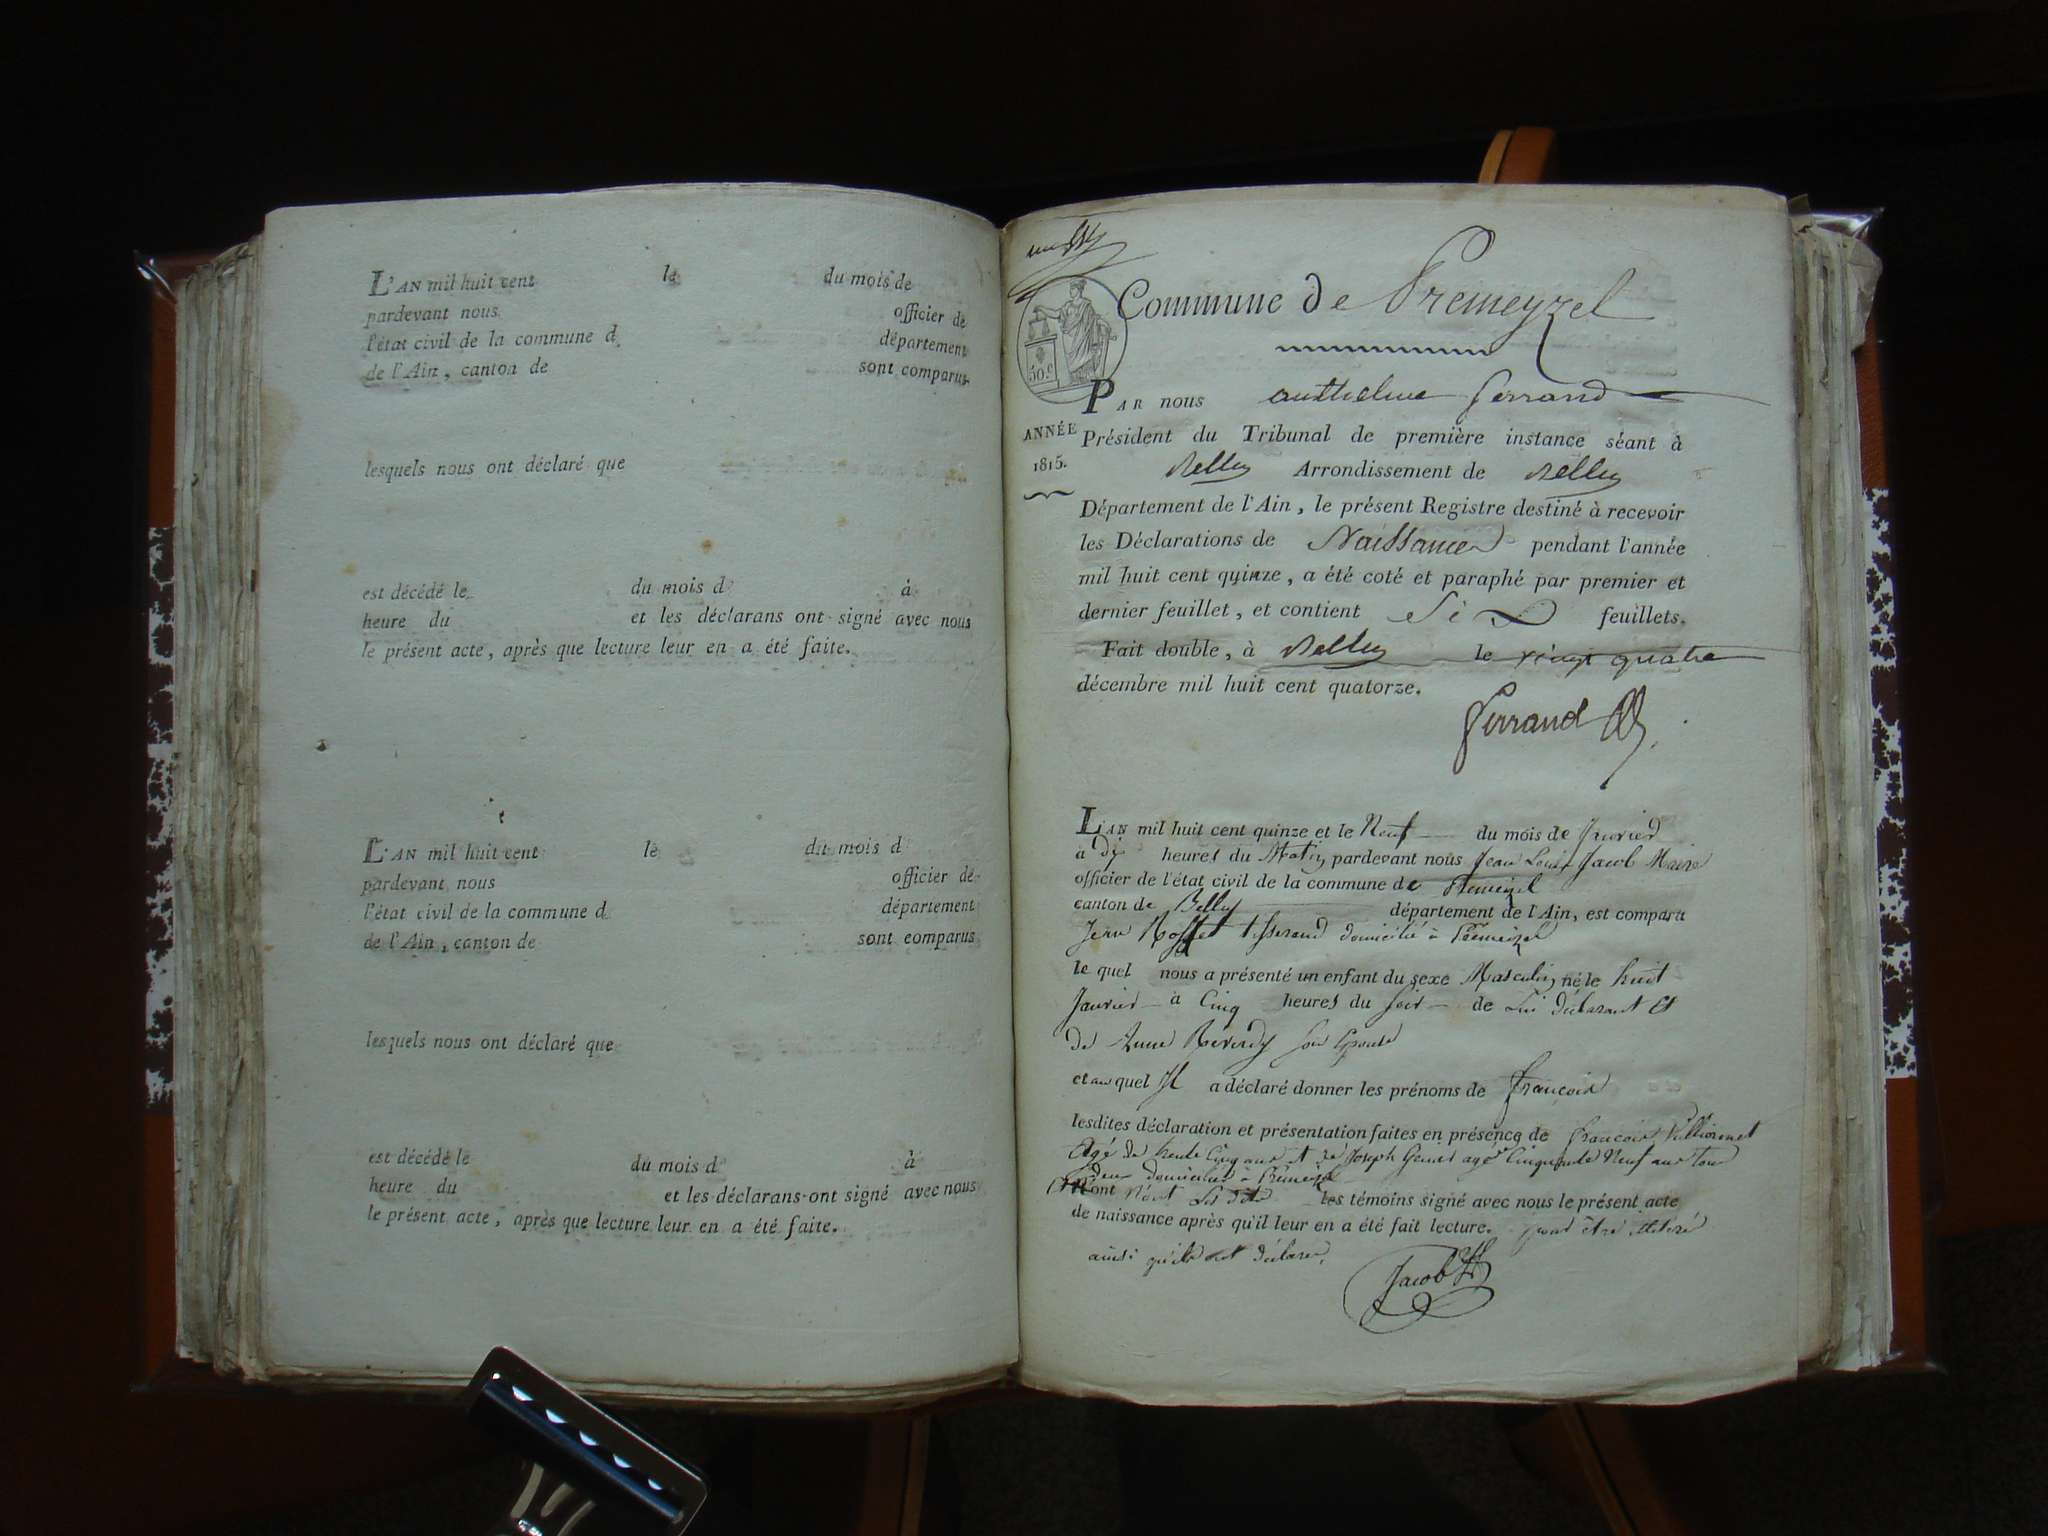 L'AN mil huit cent le du mois de
pardevant nous officier de
l'état civil de la commune d département
de l'Ain, canton de sont comparus
lesquels nous ont déclaré que
est décédé le du mois d à
heure du et les déclarans ont signé avec nous
le présent acte, après que lecture leur en a été faite.
L'AN mil huit cent le du mois d
pardevant nous officier de
l'état civil de la commune d département
de l'Ain, canton de sont comparus
lesquels nous ont déclaré que
est décédé le du mois d à
heure du et les déclarans ont signé avec nous
le présent acte, après que lecture leur en a été faite.
Commune de Premeyzel
50 c
PAR nous anthelme ferrand
ANNÉE
1815.
Président du Tribunal de première instance séant à
Belley Arrondissement de Belley
Département de l'Ain, le présent Registre destiné à recevoir
les Déclarations de Naissances pendant l'année
mil huit cent quinze, a été coté et paraphé par premier et
dernier feuillet, et contient Six feuillets.
Fait double, à Belley le vingt quatre
décembre mil huit cent quatorze.
ferrand
L'AN mil huit cent quinze et le Neuf du mois de Janvier
a dix heures du Matin pardevant nous Jean Louis Jacob Maire
officier de l'état civil de la commune de Premeizel
canton de Belley département de l'Ain, est comparu
Jean Rosset tisserand domicilié à Premeizel
le quel nous a présenté un enfant du sexe Masculin, né le huit
Janvier à Cinq heures du soir de Lui déclarant et
de Anne Reverdy son Epouse
et auquel Il a déclaré donner les prénoms de françois
lesdites déclaration et présentation faites en présence de francois
Agé de trente Cinq ans et de Joseph agé Cinquante Neuf ans tous
deux domiciliés à Premeizel
ont Nont Les dits les témoins signé avec nous le présent acte
de naissance après qu'il leur en a été fait lecture. pour être illiteré
ainsi qu'ils ont déclaré,
Jacob